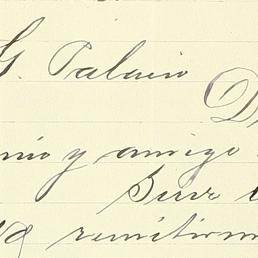 G. Palacio
mio y amigo
Sirve
remitirm